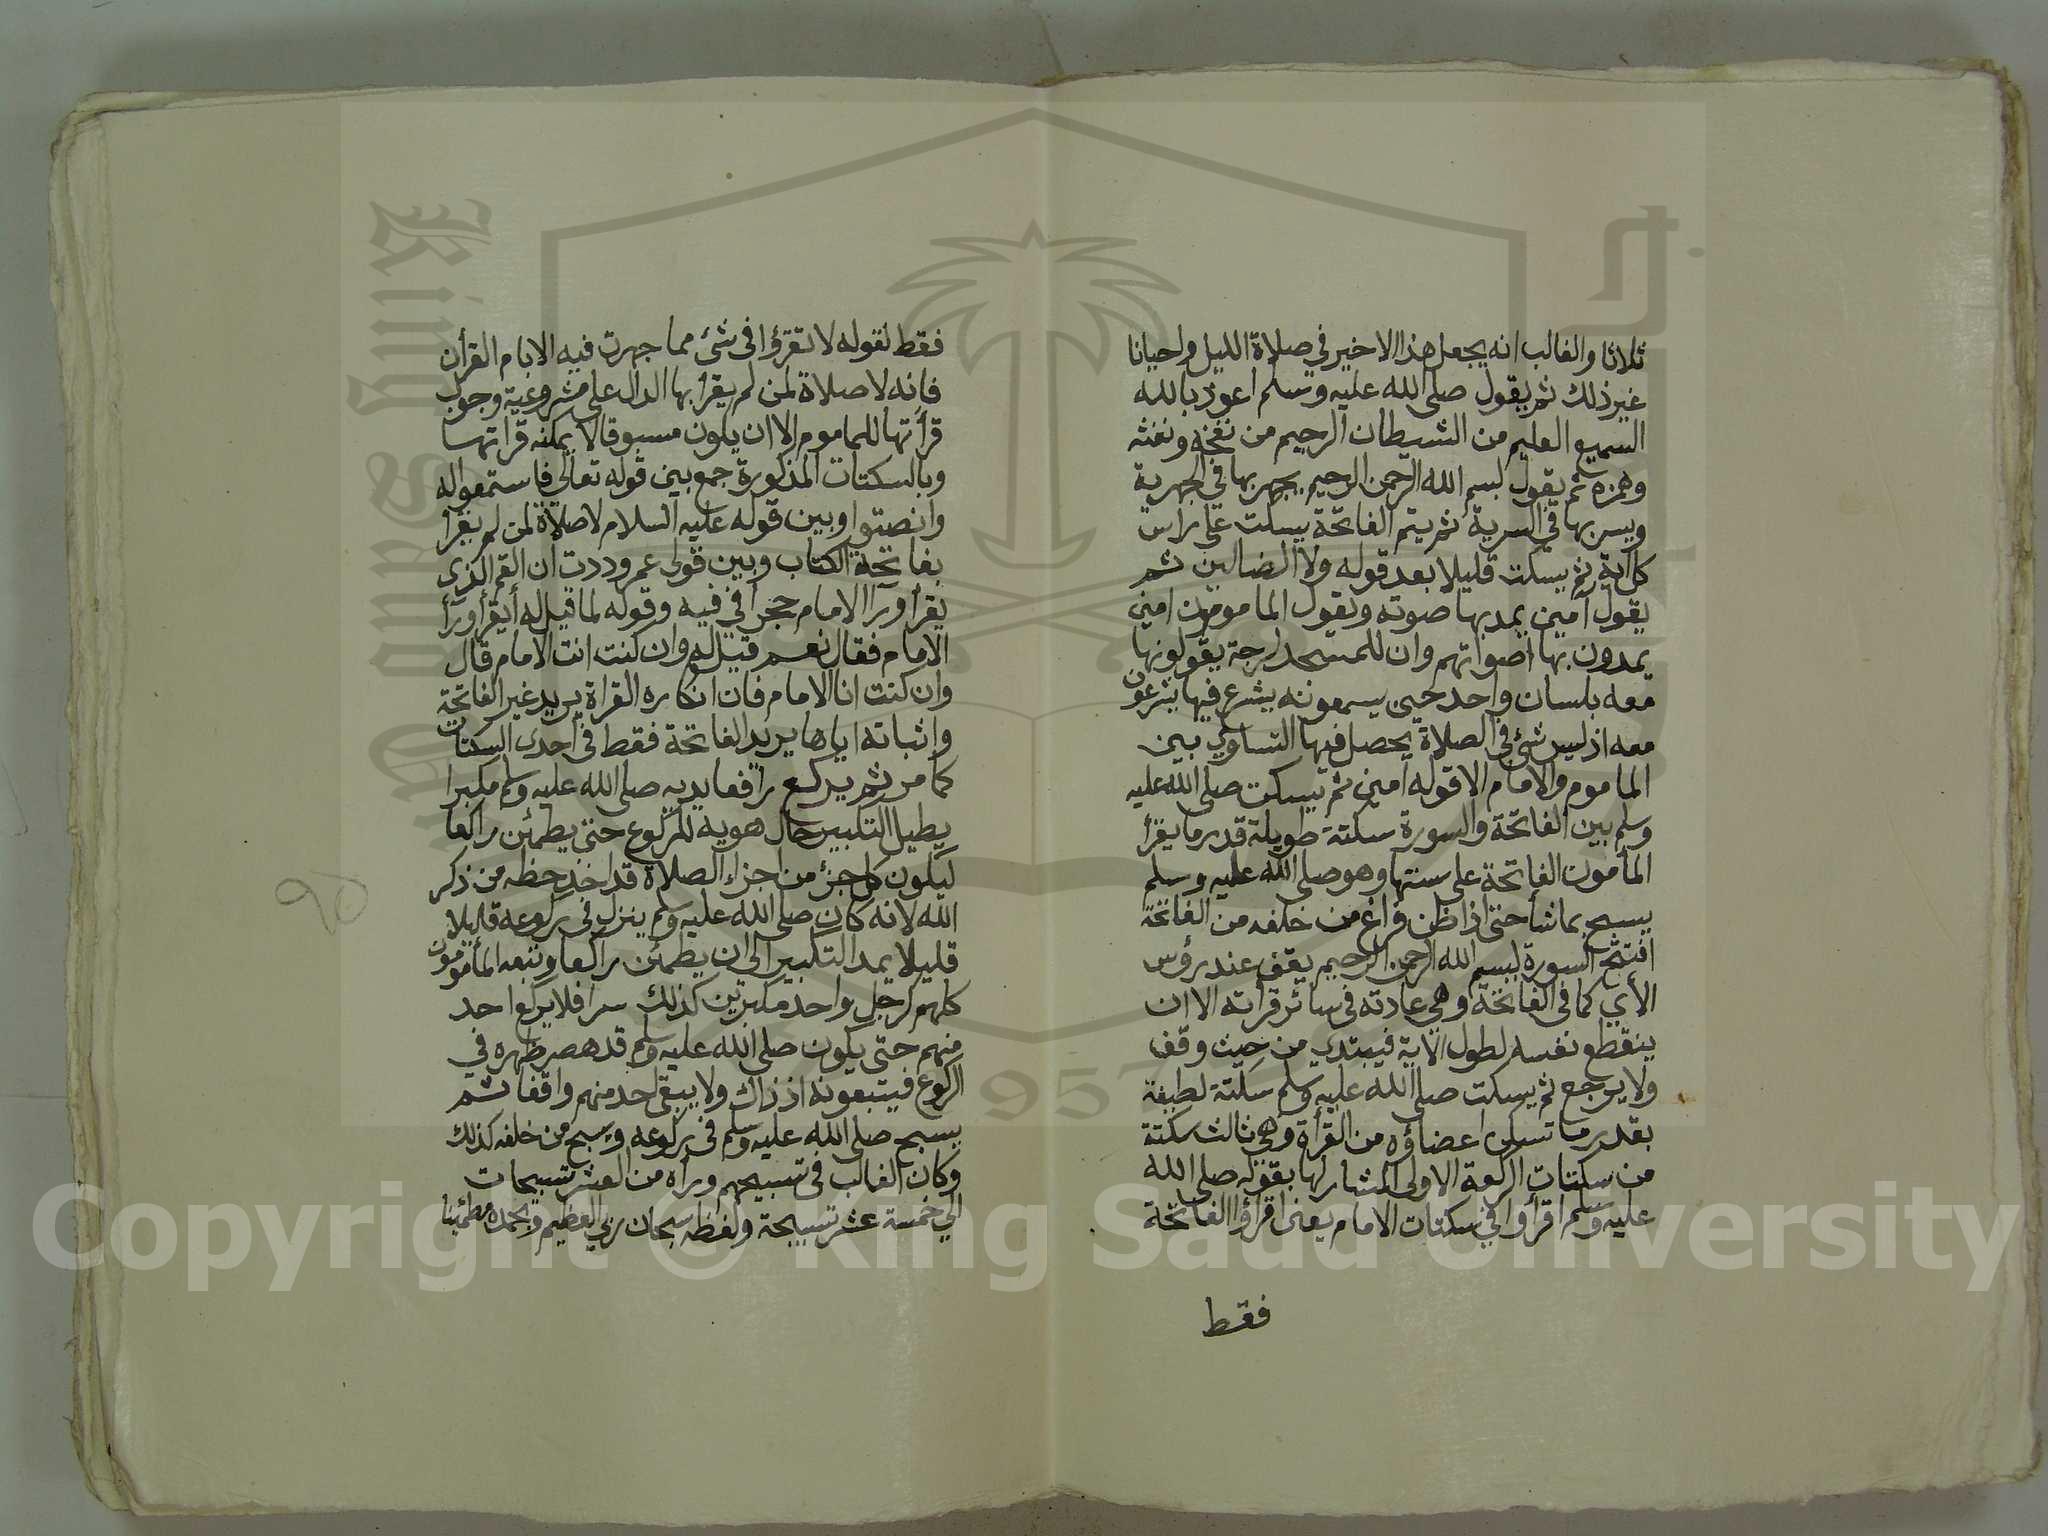 ثلاثا والغالب انه يجعل هذا الاخير في صلاة الليل واحيانا
غير ذلك ثم يقول صلى الله عليه وسلم اعوذ بالله
السميع العليم من الشيطان الرجيم من نفخه ونفثه
وهمزه ثم يقول بسم الله الرحمن الرحيم يجهر بها في الجهرية
ويسر بها في السرية ثم يتم الفاتحة يسكت على راس
كل اية ثم يسكت قليلا بعد قوله ولا الضالين ثم
يقول آمين يمد بها صوته ويقول المامومون امين
يمدون بها اصواتهم وان للمسجد لرجة يقولونها
معه بلسان واحد حين يسمعونه يشرع فيها يشرعون
معه اذ ليس شئ في الصلاة يحصل فيها التساوي بين
الماموم والامام الا قوله امين ثم يسكت صلى الله عليه
وسلم بين الفاتحة والسورة سكتة طويلة قدر ما يقرأ
المأمون الفاتحة على سنتها وهو صلى الله عليه وسلم
يسبح بما شأ حتى اذا ظن فراغ من خلفه من الفاتحة
افتتح السورة ببسم الله الرحمن الرحيم يقف عند رؤس
الأي كما في الفاتحة وهي عادته في سائر قرأته الا ان
ينقطع نفسه لطول الآية فيبتدي من حيث وقف
ولا يرجع ثم يسكت صلى الله عليه وسلم سكتة لطيفة
بقدر ما تسكن اعضاؤه من القرأة وهي ثالث سكتة
من سكتات الركعة الاولى المشار لها بقوله صلى الله
عليه وسلم اقرأوا في سكتات الامام يعني اقرؤا الفاتحة
فقط
فقط لقوله لا تقرؤا في شئ مما جهرت فيه الا بام القرأن
فإنه لا صلاة لمن لم يقرأ بها الدال على مشروعية وجوب
قرأتها للماموم الا ان يكون مسبوقا لا يمكنه قراتها
وبالسكتات المذكورة جمع بين قوله تعالى فاستمعوا له
وانصتوا وبين قوله عليه السلام لا صلاة لمن لم يقرأ
بفاتحة الكتاب وبين قول عمر وددت ان الفم الذي
يقرأ ورآ الامام حجرا في فيه وقوله لما قيل له أيقرأ ورأ
الامام فقال نعم قيل له وان كنت انت الامام قال
وان كنت انا الامام فان انكاره القراة يريد غير الفاتحة
واثباته اياها يريد الفاتحة فقط في احدى السكتات
كما مر ثم يركع رافعا يديه صلى الله عليه وسلم مكبرا
يطيل التكبير حال هويه للركوع حتى يطمئن راكعا
ليكون كل جزء من اجزاء الصلاة قد اخذ حظه من ذكر
الله لانه كان صلى الله عليه وسلم ينزل في ركوعه قليلا
قليلا يمد التكبير الى ان يطمئن راكعا وتبعه المأمومون
كلهم كرجل واحد مكبرين كذلك سرا فلا يركع احد
منهم حتى يكون صلى الله عليه وسلم قد هصر ظهره في
الركوع فيتبعونه اذ ذاك ولا يبقى احد منهم واقفا ثم
يسبح صلى الله عليه وسلم في ركوعه ويسبح من خلفه كذلك
وكان الغالب في تسبيحهم وراه من العشر تسبيحات
الى خمسة عشر تسبيحة ولفظه سبحان ربي العظيم وبحمده مطمئنا
King Saud University
1957
Copyright © King Saud University